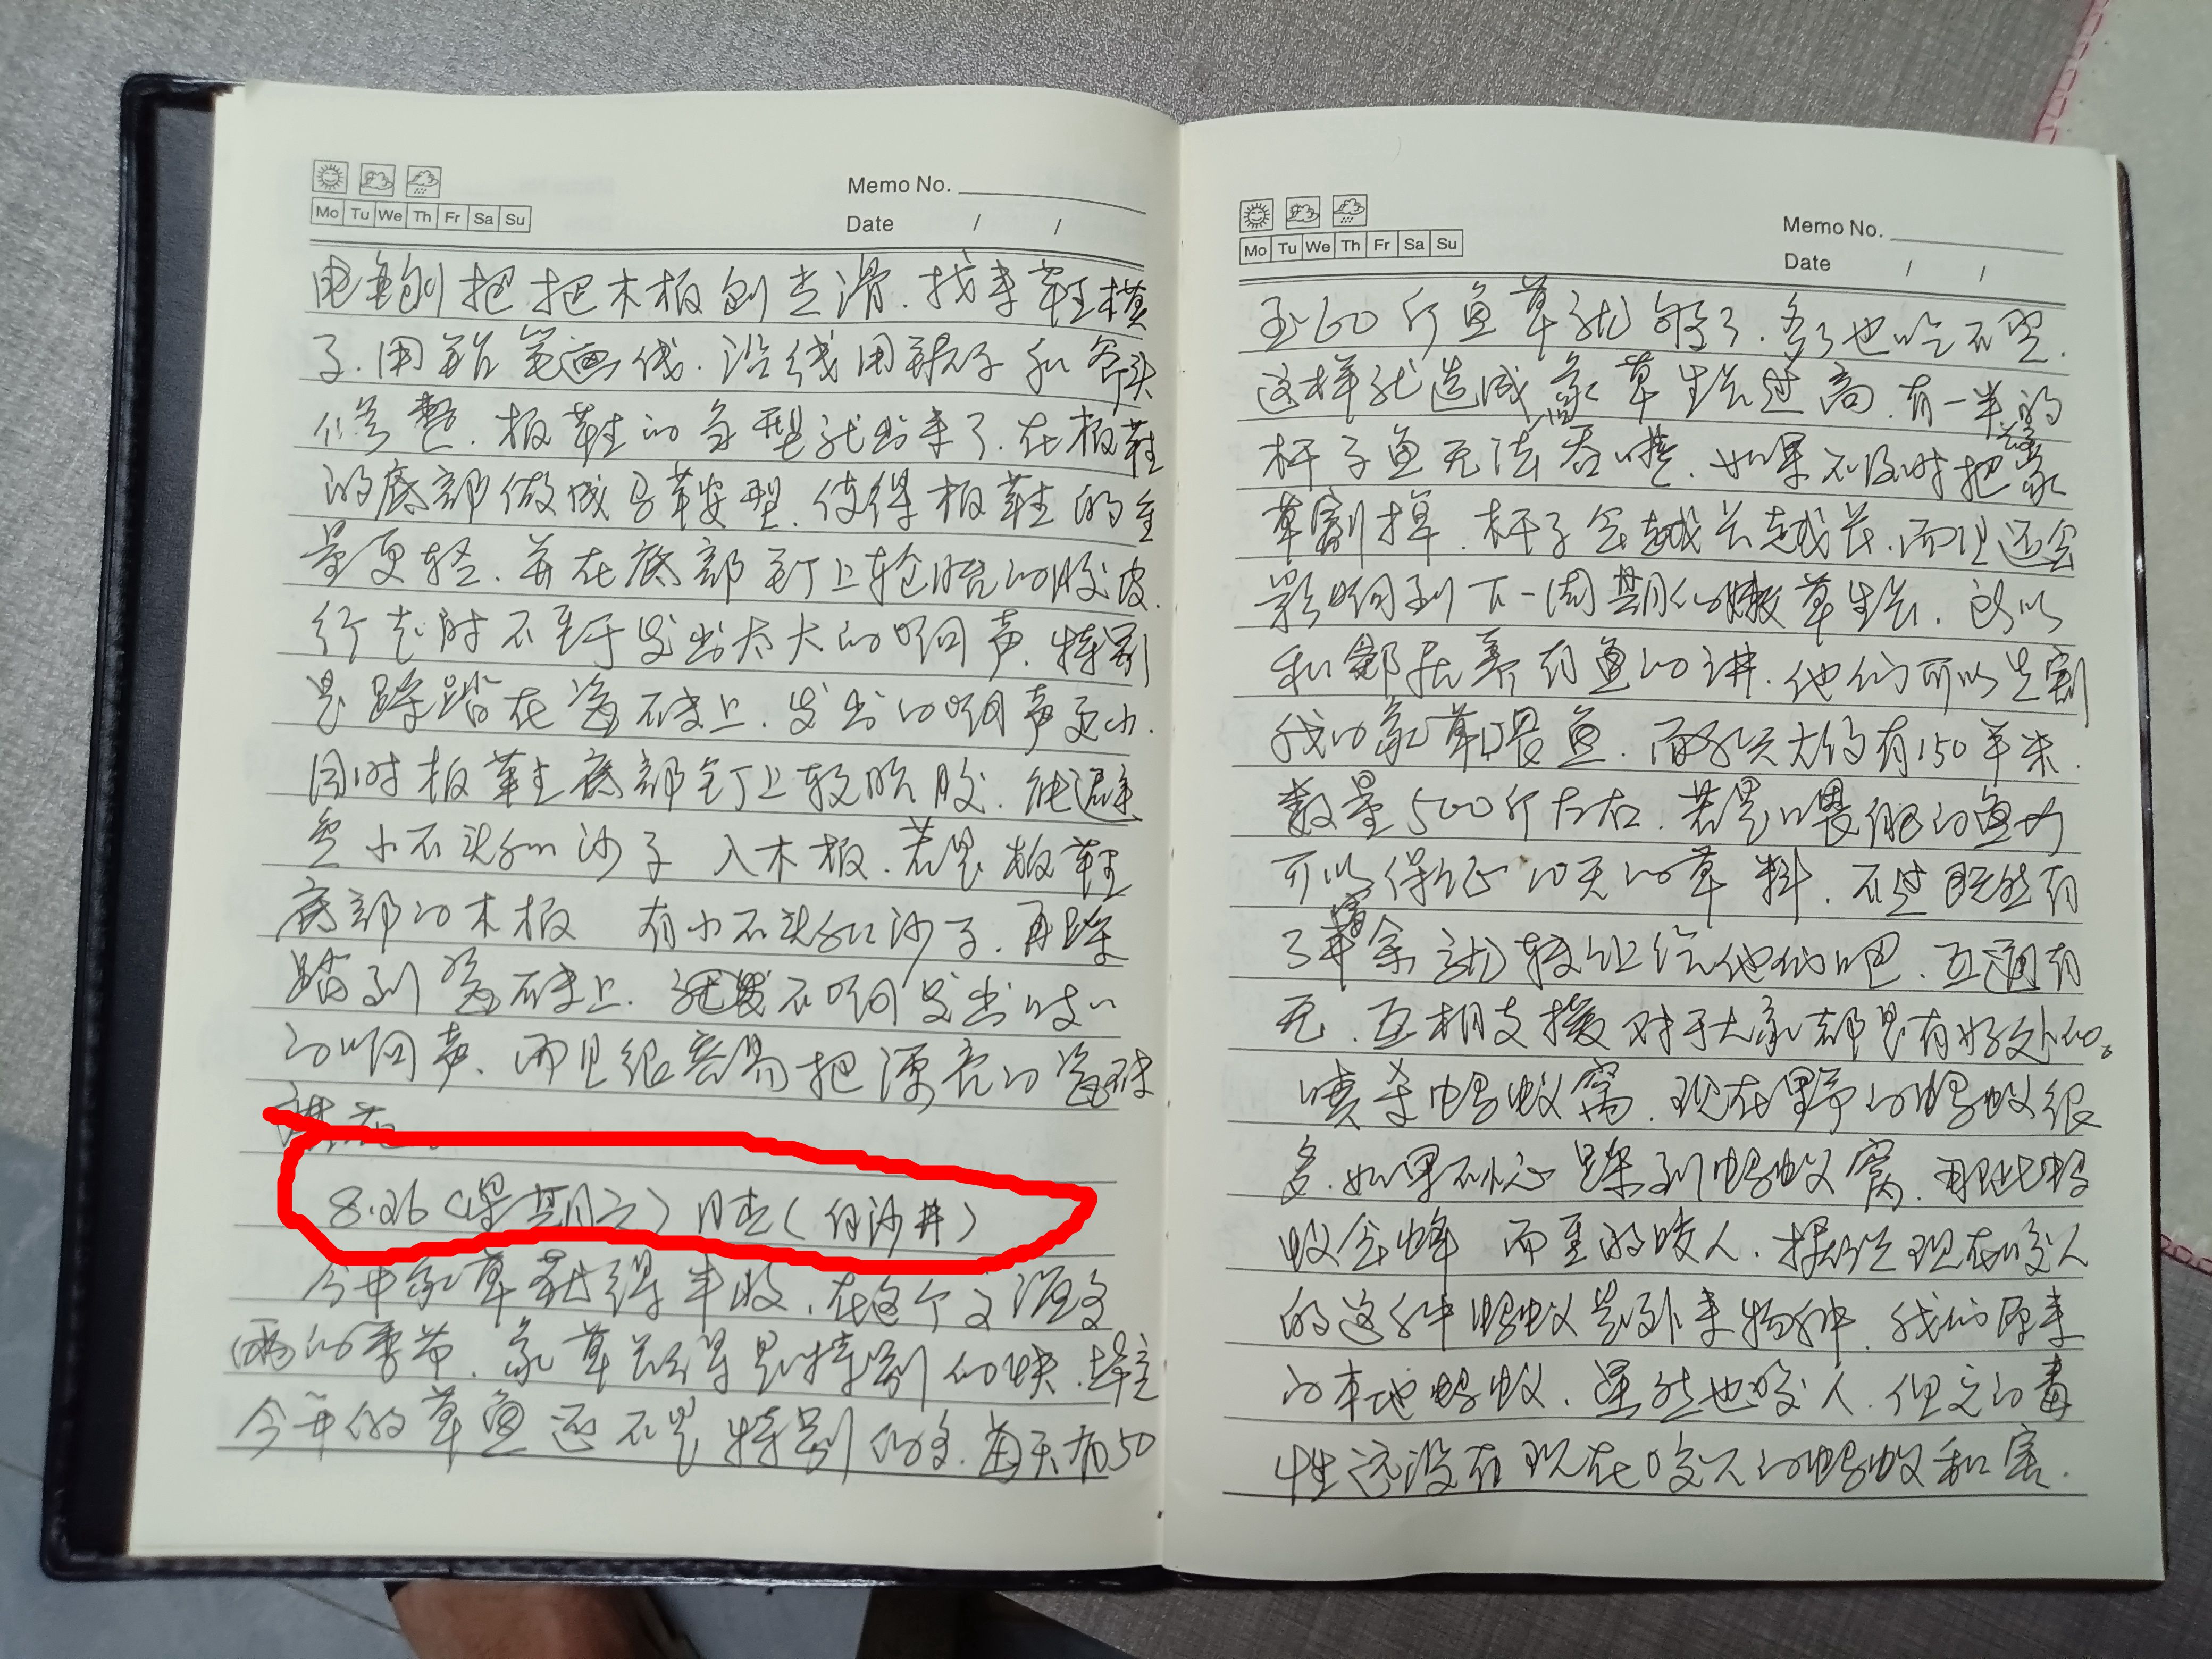 Memo No.
Mo Tu We Th Fr Sa Su
Date / /
电刨把把木板刨光滑.找来鞋模
子.用铅笔画线.沿线用锯子和斧头
修整.板鞋的多型就出来了.在板鞋
的底部做成马鞍型.使得板鞋的重
量更轻.并在底部钉上轮胎的胶皮.
行走时不至于发出太大的响声.特别
是踩踏在瓷砖上.发出的响声更小.
同时板鞋底部钉上软胶.能避
免小石头和沙子入木板.若是板鞋
底部的木板 有小石头和沙子.再踩
踏到瓷砖上.就不响发出吱吱
的响声、而且很容易把漂亮的瓷砖
8.26(星期六)日志(白沙井)
今年象草获得丰收.在这个高温多
雨的季节.象草长得是特别的快.
今年的草鱼还不是特别的多.每天有50
Memo No.
Mo Tu We Th Fr Sa Su
Date / /
至60斤鱼草就够了.多了也吃不完.
这样就造成象草生长过高.有一半的
杆子鱼无法吞噬.如果不及时把象
草割掉.杆子会越长越长.而且还会
影响到下一周期的嫩草生长.所以
和邻居养有鱼的讲.他们可以先割
我的象草喂鱼.大约有150平米.
数量500斤左右.若是喂我的鱼
可以保证10天的草料.不过既然有
了余就转让给他们吧.互通有
无.互相支援对于大家都是有好处的。
喷杀蚂蚁窝.现在野的蚂蚁很
多.如果不小心踩到蚂蚁窝.那些蚂
蚁会蜂而至的咬人.据说现在咬人
的这种蚂蚁是外来物种.我们原来
的本地蚂蚁.虽然也咬人.但它的毒
性远没有现在咬人的蚂蚁利害.